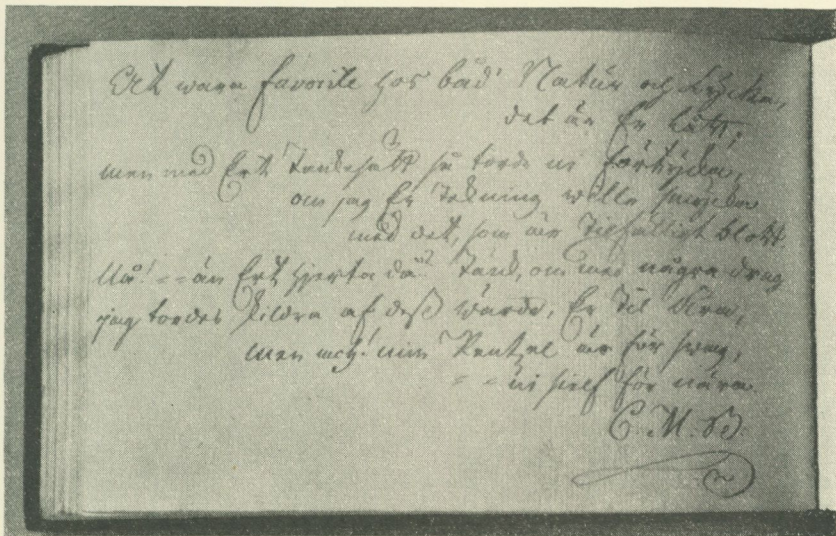 Ert wara favorite hos båd' Natur och Lycka,
det är Er lått;
men med Ert Tankesätt så torde ni förtycka,
om jag Er Tekning wille smycka
med det, som är Tilfälligt blott.
Nå! -- än Ert hjerta då? Tänk, om med några drag
jag tordes skildra af dess wärde, Er til ära,
men ach! min Pentzel är för swag,
- - ni sielf för nära.
C. M. B.